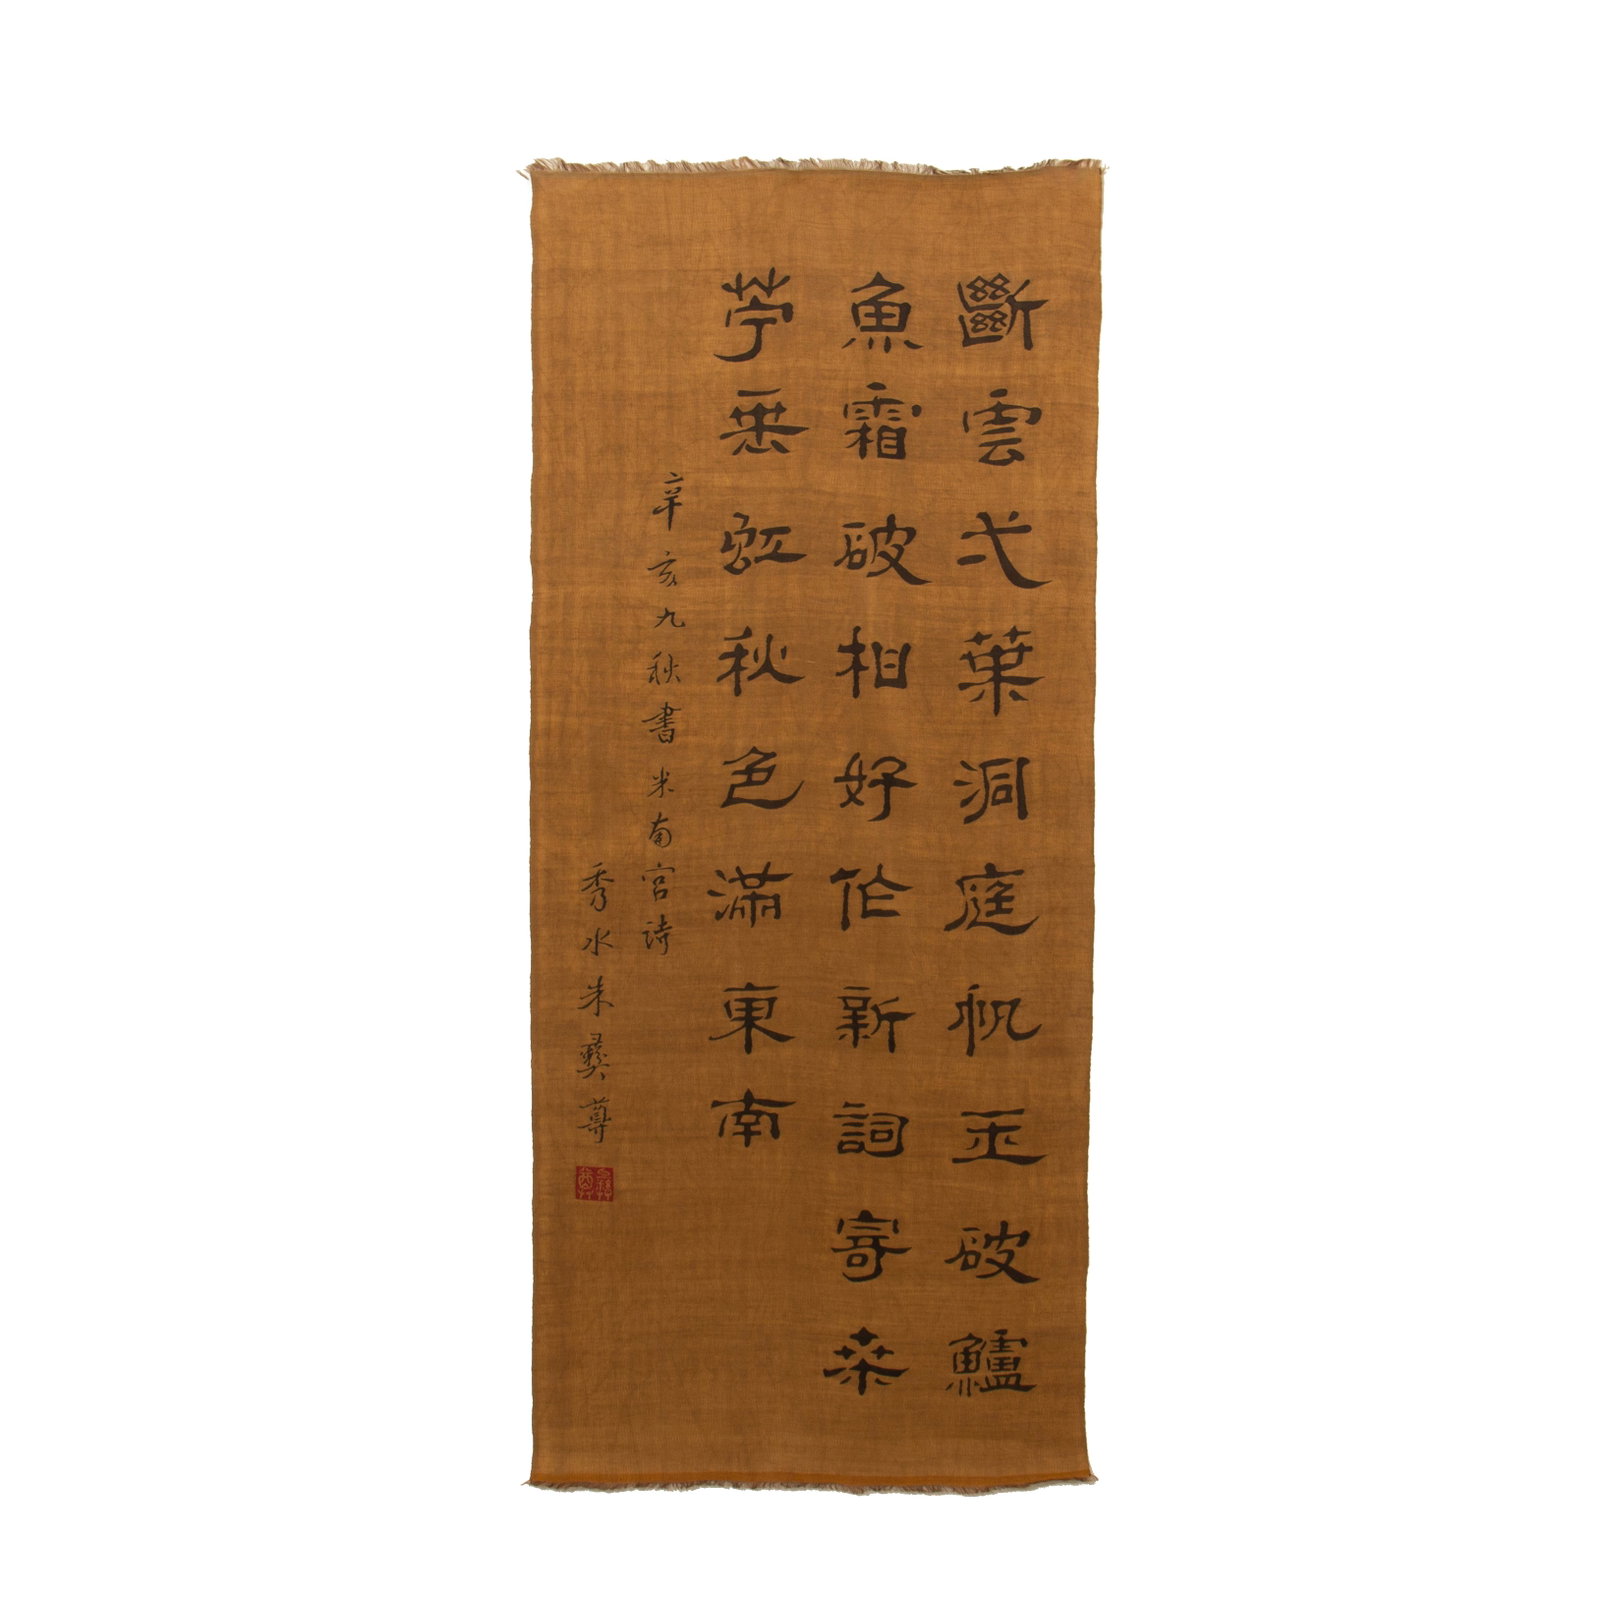 斷雲弌葉洞庭帆玉破鱸
魚霜破柑好作新詞寄桑
苧垂虹秋色滿東南
辛亥九秋書米南宮詩
秀水朱彝尊
彝尊